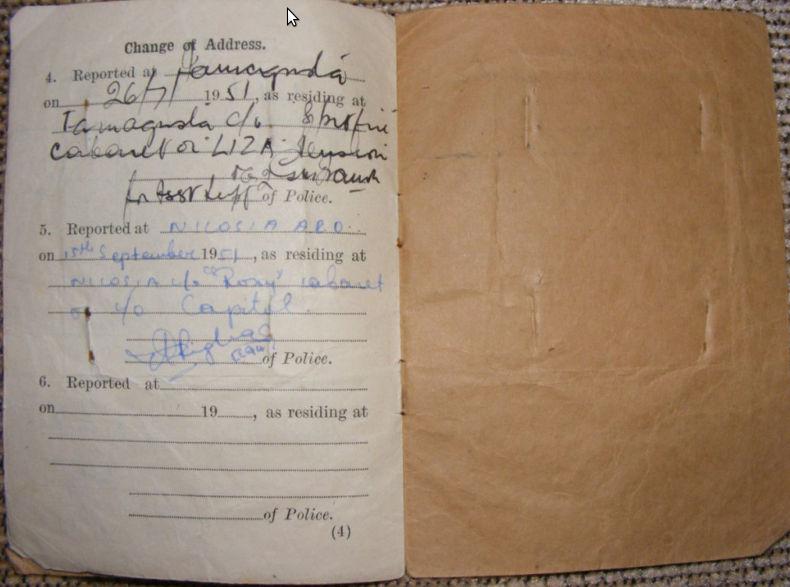 Change of Address.
4. Reported at Famagusta
on 26/7/ 1951, as residing at
Famagusta c/o
Cabaret or LIZA
for Asst Supt of Police.
5. Reported at NICOSIA ARO.
on 15th September 1951, as residing at
NICOSIA c/o "Roxy" cabaret
or c/o Capitol.
of Police.
6. Reported at
on 19 , as residing at
of Police.
(4)